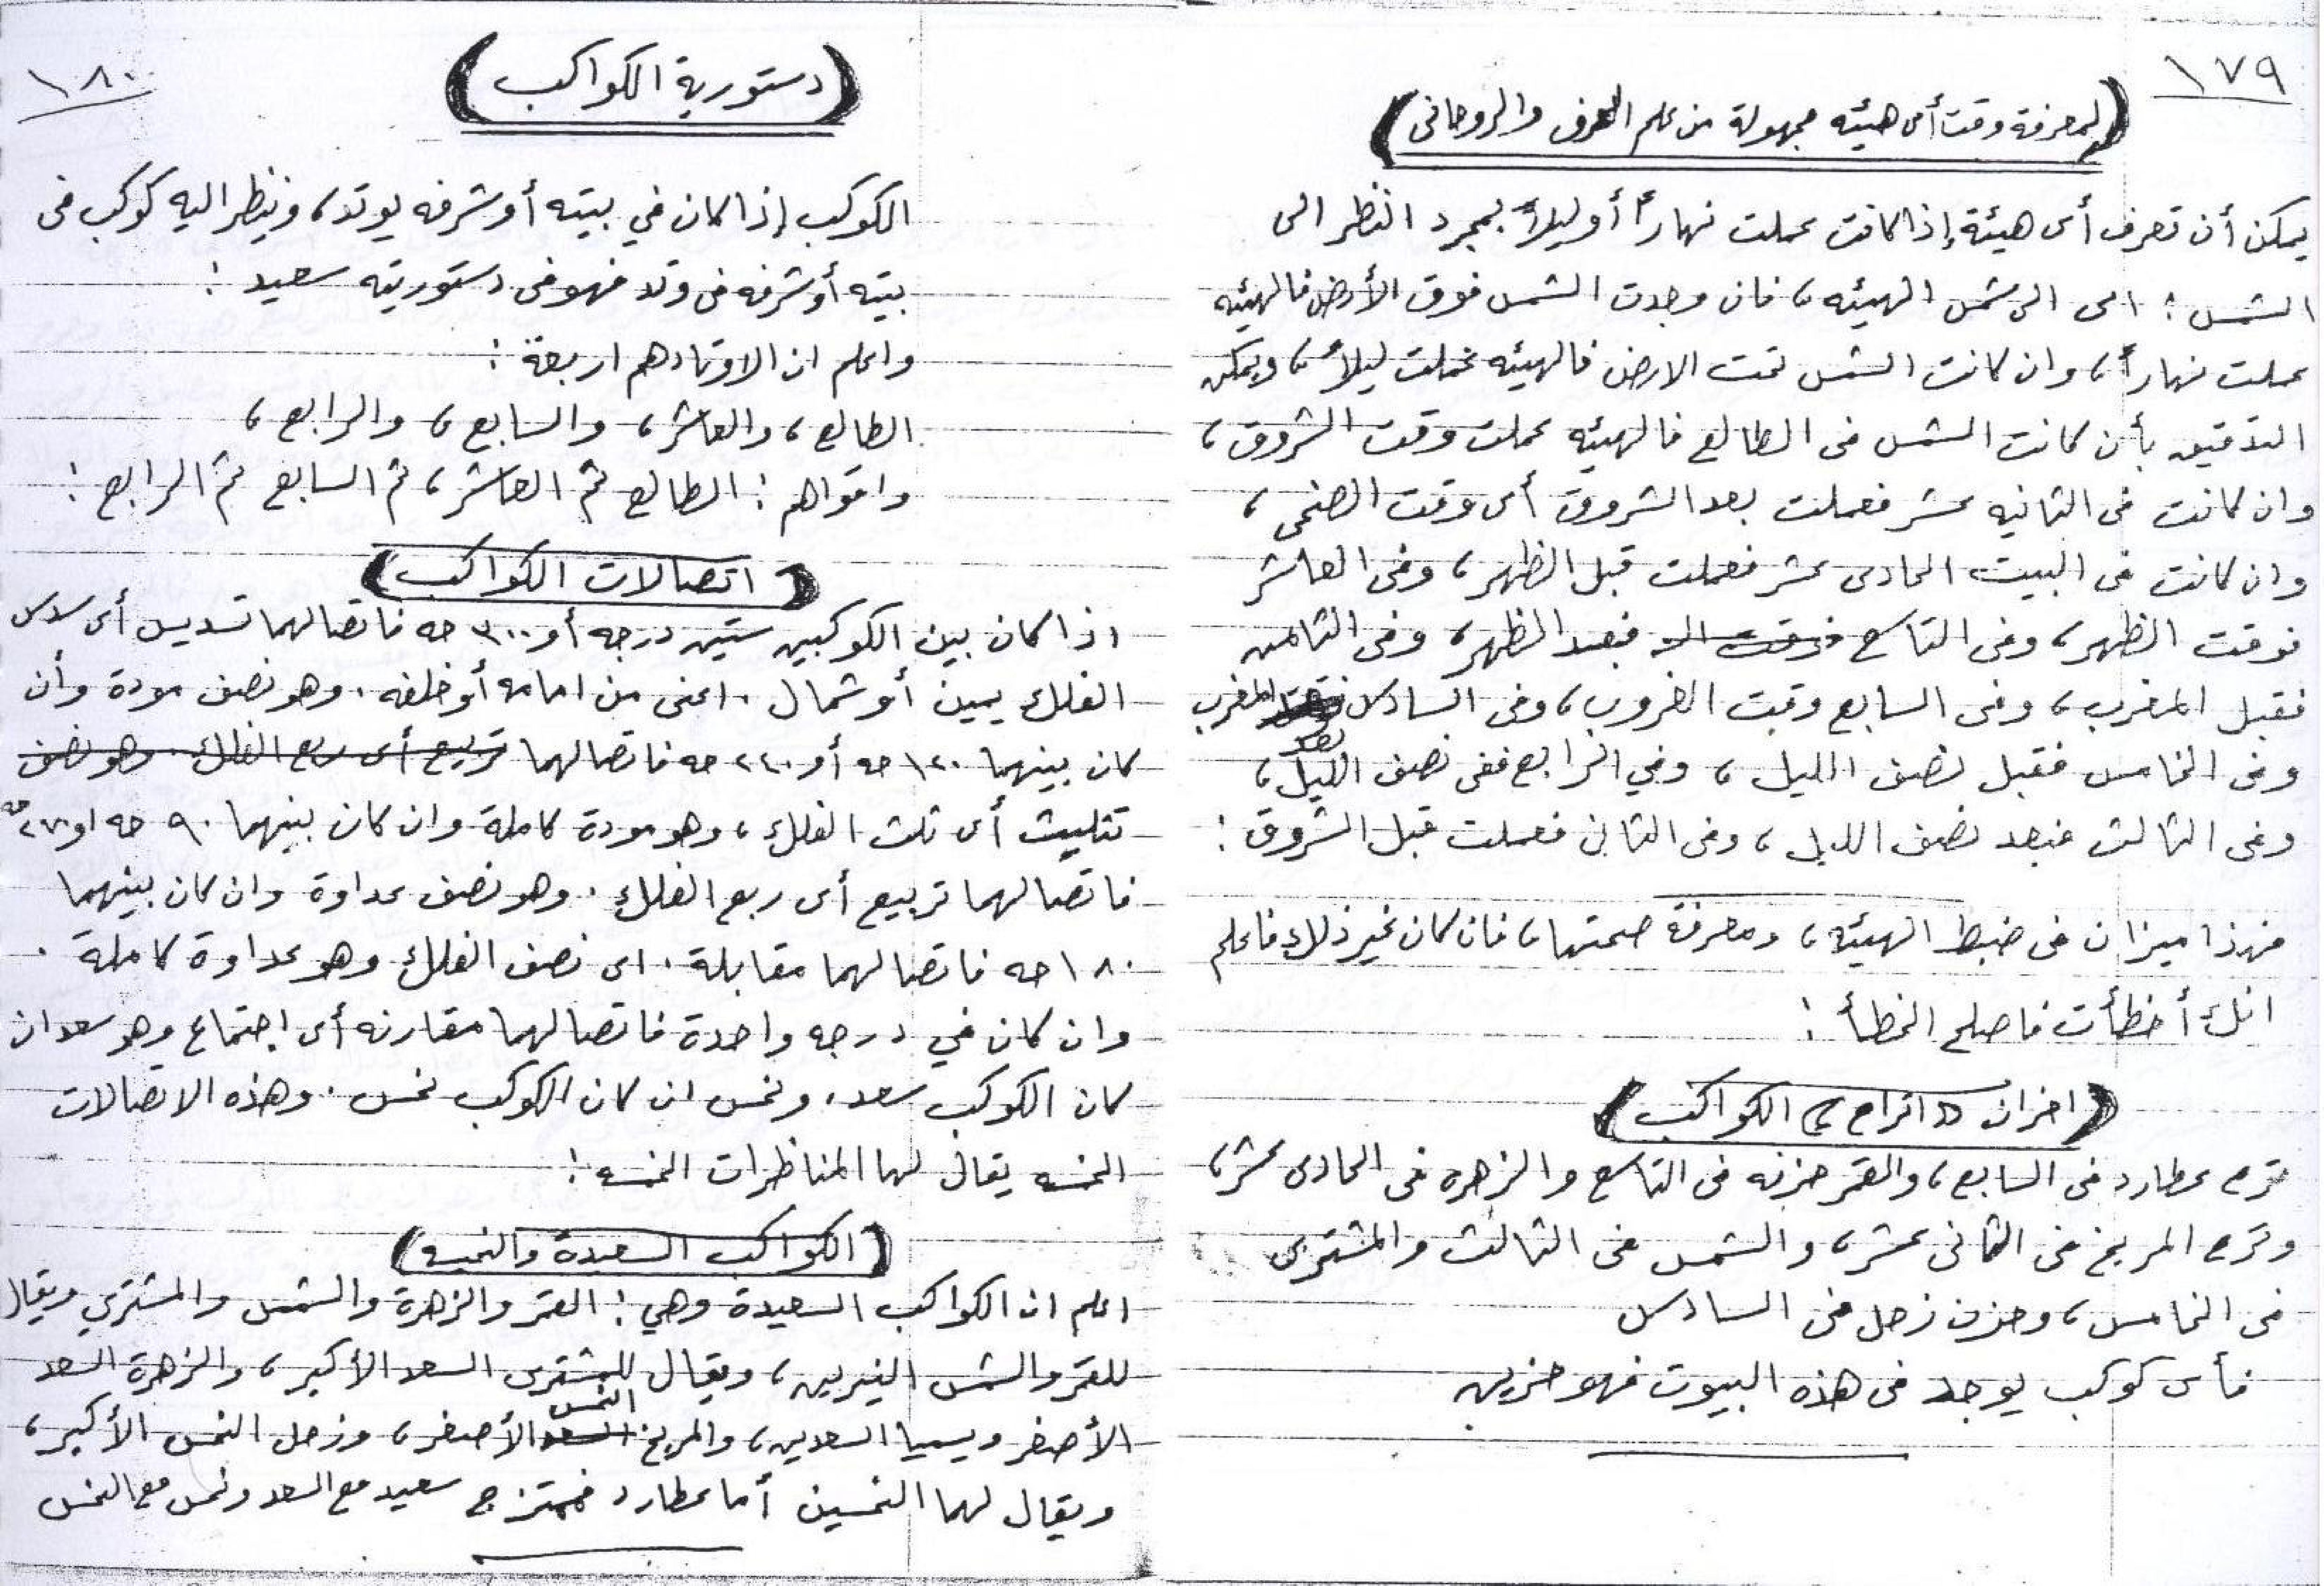 ١٧٩
(لمعرفة وقت أى هيئه مجهولة من علم الحرف والروحانى)
يمكن أن تعرف أى هيئة إذا كانت عملت نهاراً أو ليلاً بمجرد النظر الى
الشمس : اى الى شمس الهيئه، فان وجدت الشمس فوق الأرض فالهيئه
عملت نهاراً، وان كانت الشمس تحت الارض فالهيئه عملت ليلاً، ويمكن
التدقيق بأن كانت الشمس فى الطالع فالهيئه عملت وقت الشروق،
وان كانت فى الثانيه عشر فعملت بعد الشروق أى وقت الضحى،
وان كانت فى البيت الحادى عشر فعملت قبل الظهر، وفى العاشر
فوقت الظهر، وفى التاسع فوقت الـ فبعد الظهر، وفى الثامن
فقبل المغرب، وفى السابع وقت الغروب، وفى السادس بعد المغرب
وفى الخامس فقبل نصف الليل، وفي الرابع ففى نصف الليل،
وفى الثالث فبعد نصف الليل، وفى الثانى فعملت قبل الشروق :
فهذا ميزان فى ضبط الهيئه، ومعرفة صحتها، فان كان غير ذلك فاعلم
انك أخطأت فاصلح الخطأ :
(احزان «اتراح» الكواكب)
ترح عطارد فى السابع، والقمر حزنه فى التاسع والزهره فى الحادى عشر،
وترح المريخ فى الثانى عشر، والشمس فى الثالث والمشترى
فى الخامس، وحزن زحل فى السادس
فأى كوكب يوجد فى هذه البيوت فهو حزين
١٨٠
(دستورية الكواكب)
الكوكب إذا كان في بيته أو شرفه بوتد، وينظر اليه كوكب فى
بيته أو شرفه فى وتد فهو فى دستوريته سعيد :
واعلم ان الاوتاد هم اربعة :
الطالع، والعاشر، والسابع، والرابع،
واقواهم : الطالع ثم العاشر، ثم السابع ثم الرابع :
(اتصالات الكواكب)
اذا كان بين الكوكبين ستين درجه أو ٣٠٠ حه فاتصالهما تسديس أى سدس
الفلك يمين أو شمال . اعنى من امامه أو خلفه . وهو نصف مودة وأن
كان بينهما ١٢٠ حه أو ٢٤٠ حه فاتصالهما تربيع أى ربع الفلك . وهو نصف
تثليث أى ثلث الفلك، وهو مودة كاملة وان كان بينهما ٩٠ حه او ٢٧٠ حه
فاتصالهما تربيع أى ربع الفلك . وهو نصف عداوة وان كان بينهما
١٨٠ حه فاتصالهما مقابلة . اى نصف الفلك وهو عداوة كاملة .
وان كان في درجه واحدة فاتصالهما مقارنه أى إجتماع وهو سعد ان
كان الكوكب سعد . ونحس ان كان الكوكب نحس . وهذه الاتصالات
الخمسه يقال لها المناظرات الخمسه :
(الكواكب السعيدة والنحيسه)
اعلم ان الكواكب السعيدة وهي : القمر والزهرة والشمس والمشتري ويقال
للقمر والشمس النيرين، ويقال للمشترى السعد الأكبر، والزهرة السعد
الأصغر ويسميا السعدين، والمريخ السعد النحس الأصغر، وزحل النحس الأكبر،
ويقال لهما النحسين أما عطارد فممتزج سعيد مع السعد ونحس مع النحس